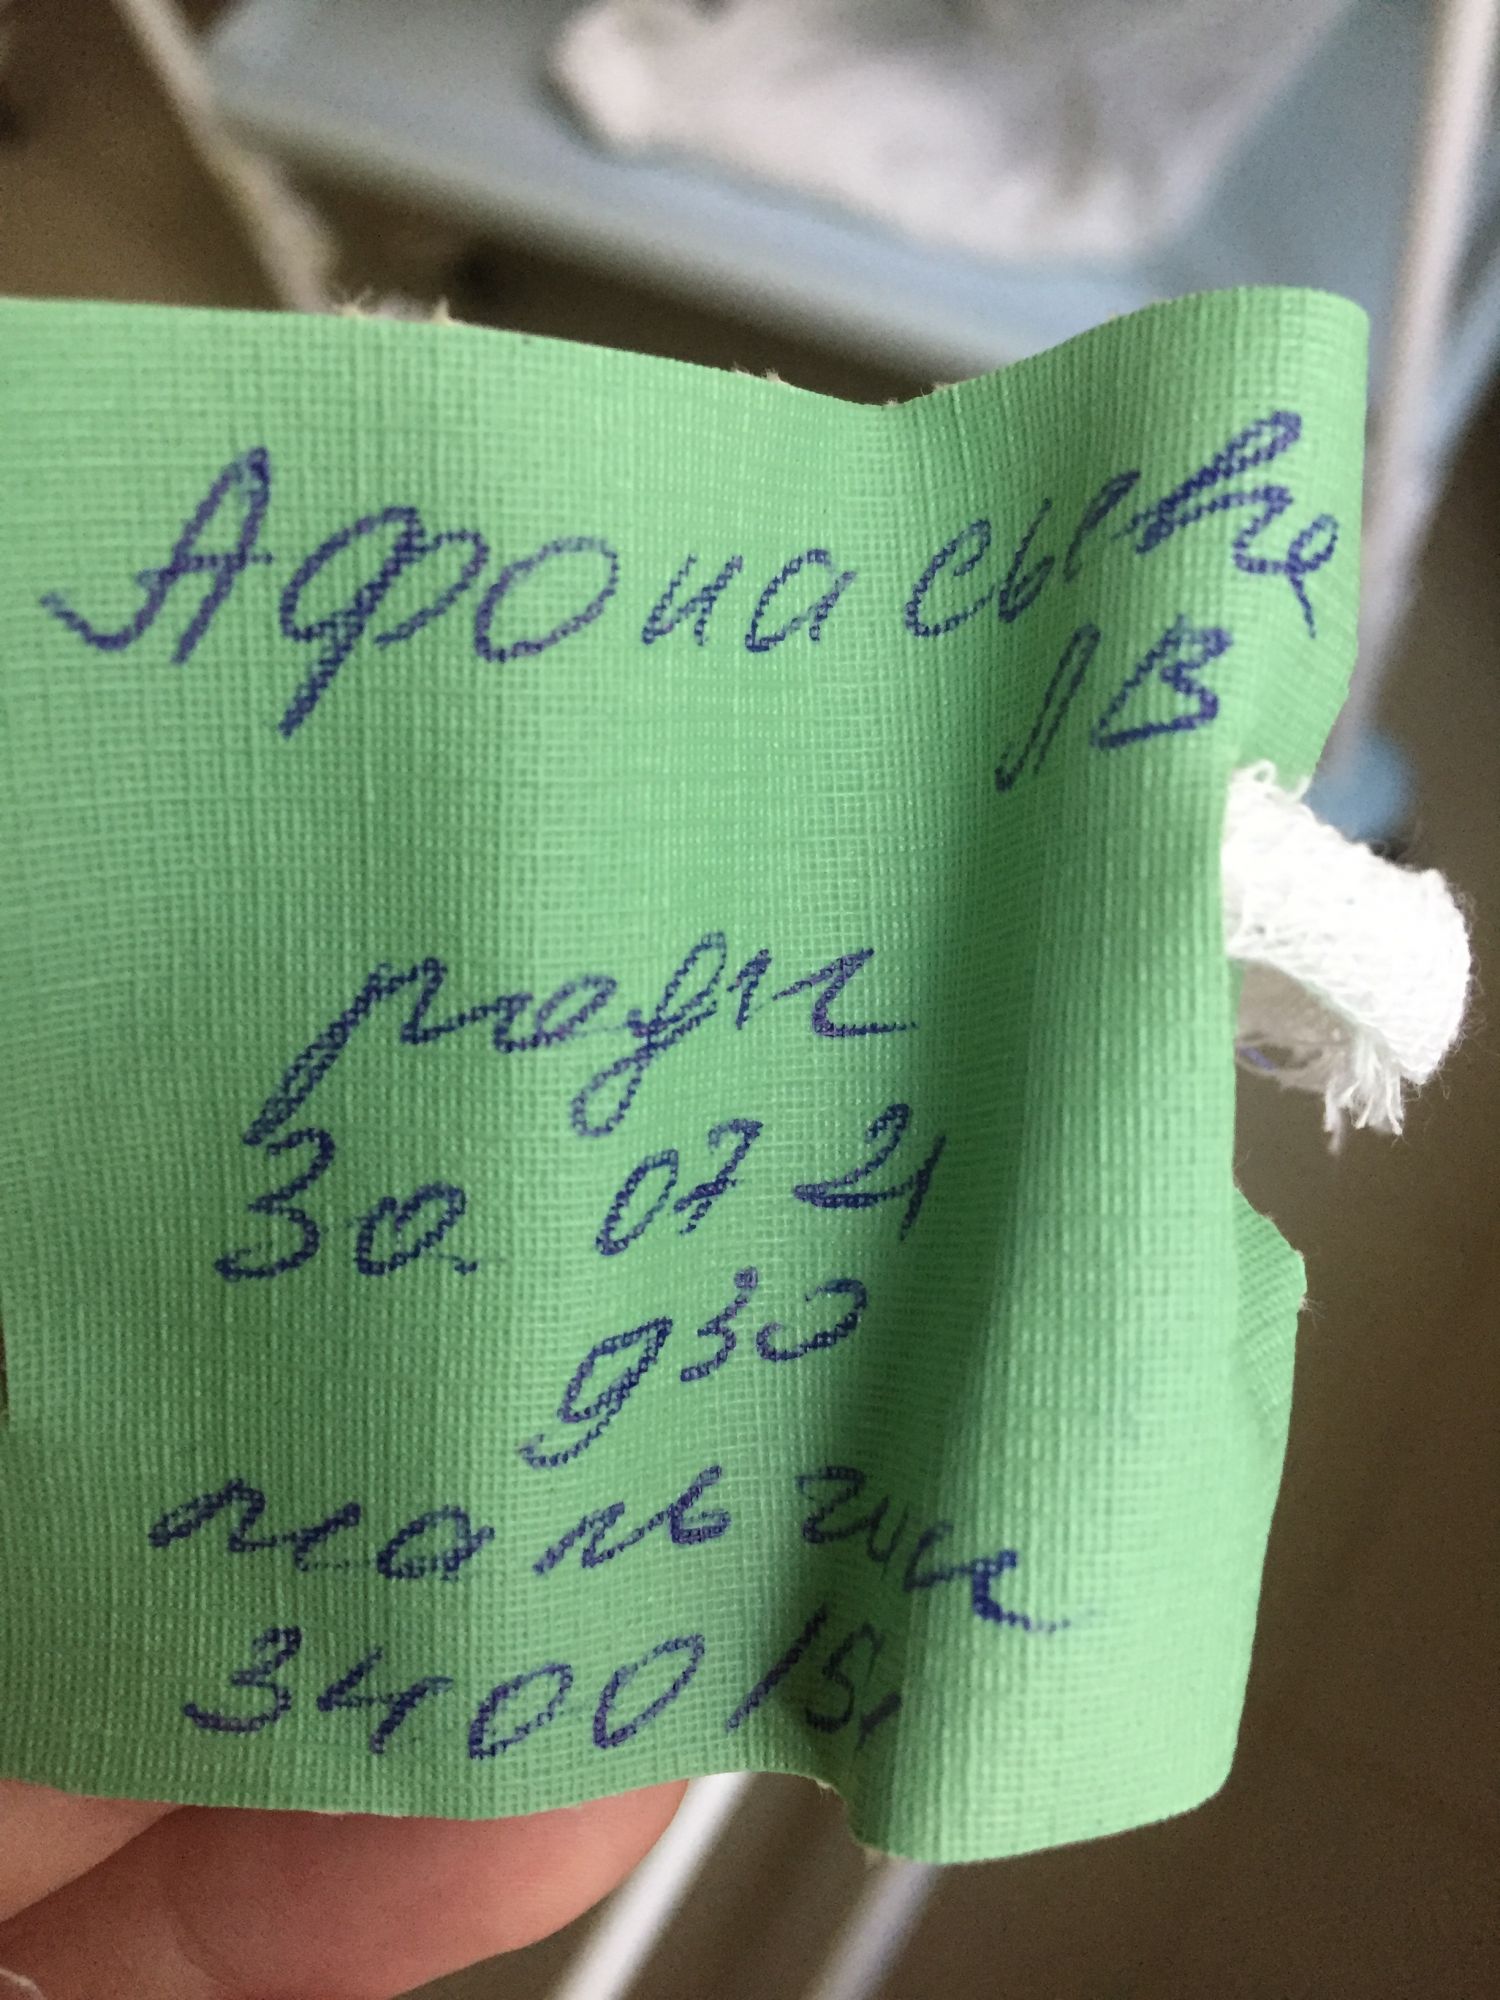 Афонасьева
ЛВ
родил
30 07 21
9 30
мальчик
3400 / 51